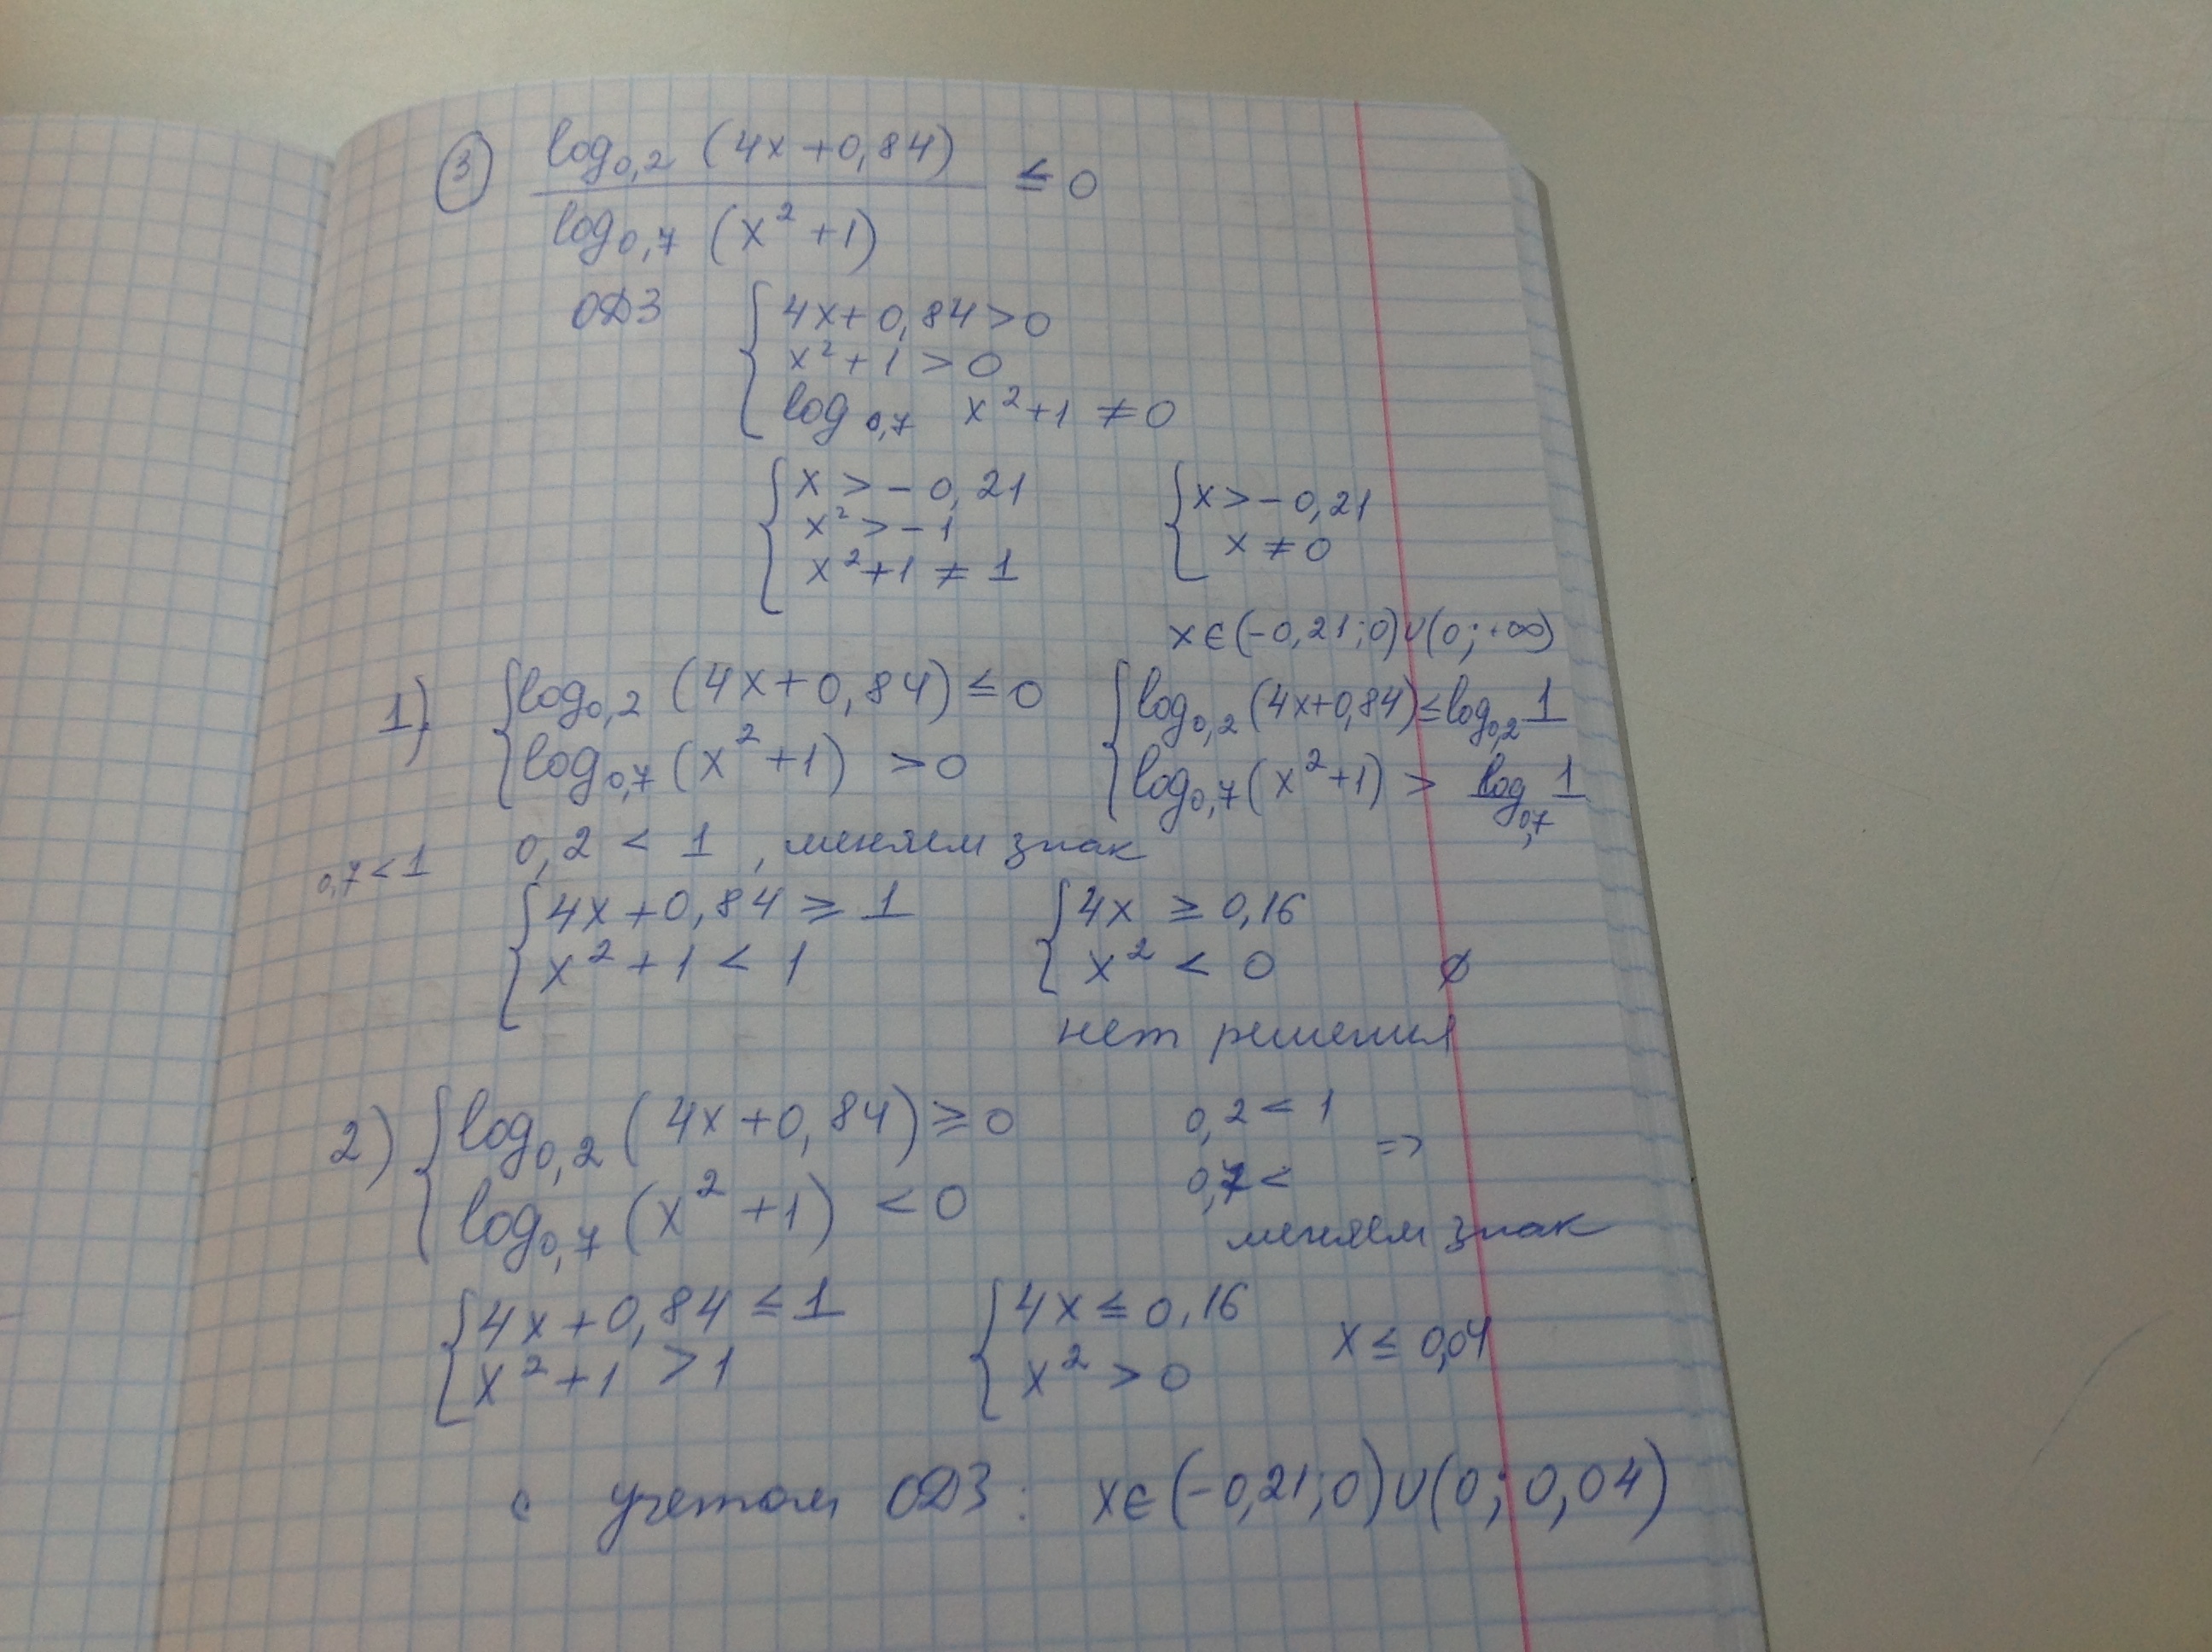 ③ log₀,₂ (4x+0,84) / log₀,₇ (x²+1) ≤ 0
ОДЗ { 4x+0,84>0
x²+1 >0
log₀,₇ x²+1 ≠0
{ x > -0,21
x² > -1
x²+1 ≠ 1
{ x > -0,21
x ≠ 0
x∈(-0,21;0)∪(0;+∞)
1) { log₀,₂ (4x+0,84) ≤ 0
log₀,₇ (x²+1) >0
{ log₀,₂ (4x+0,84) ≤ log₀,₂ 1
log₀,₇ (x²+1) > log₀,₇ 1
0,7<1 0,2 < 1, меняем знак
{ 4x+0,84 ≥ 1
x²+1 < 1
{ 4x ≥ 0,16
x² < 0 ∅
нет решения
2) { log₀,₂ (4x+0,84) ≥ 0
log₀,₇ (x²+1) < 0
0,2 < 1 =>
0,7 <
меняем знак
{ 4x+0,84 ≤ 1
x²+1 > 1
{ 4x ≤ 0,16
x² > 0
x ≤ 0,04
с учетом ОДЗ: x∈(-0,21;0)∪(0; 0,04)